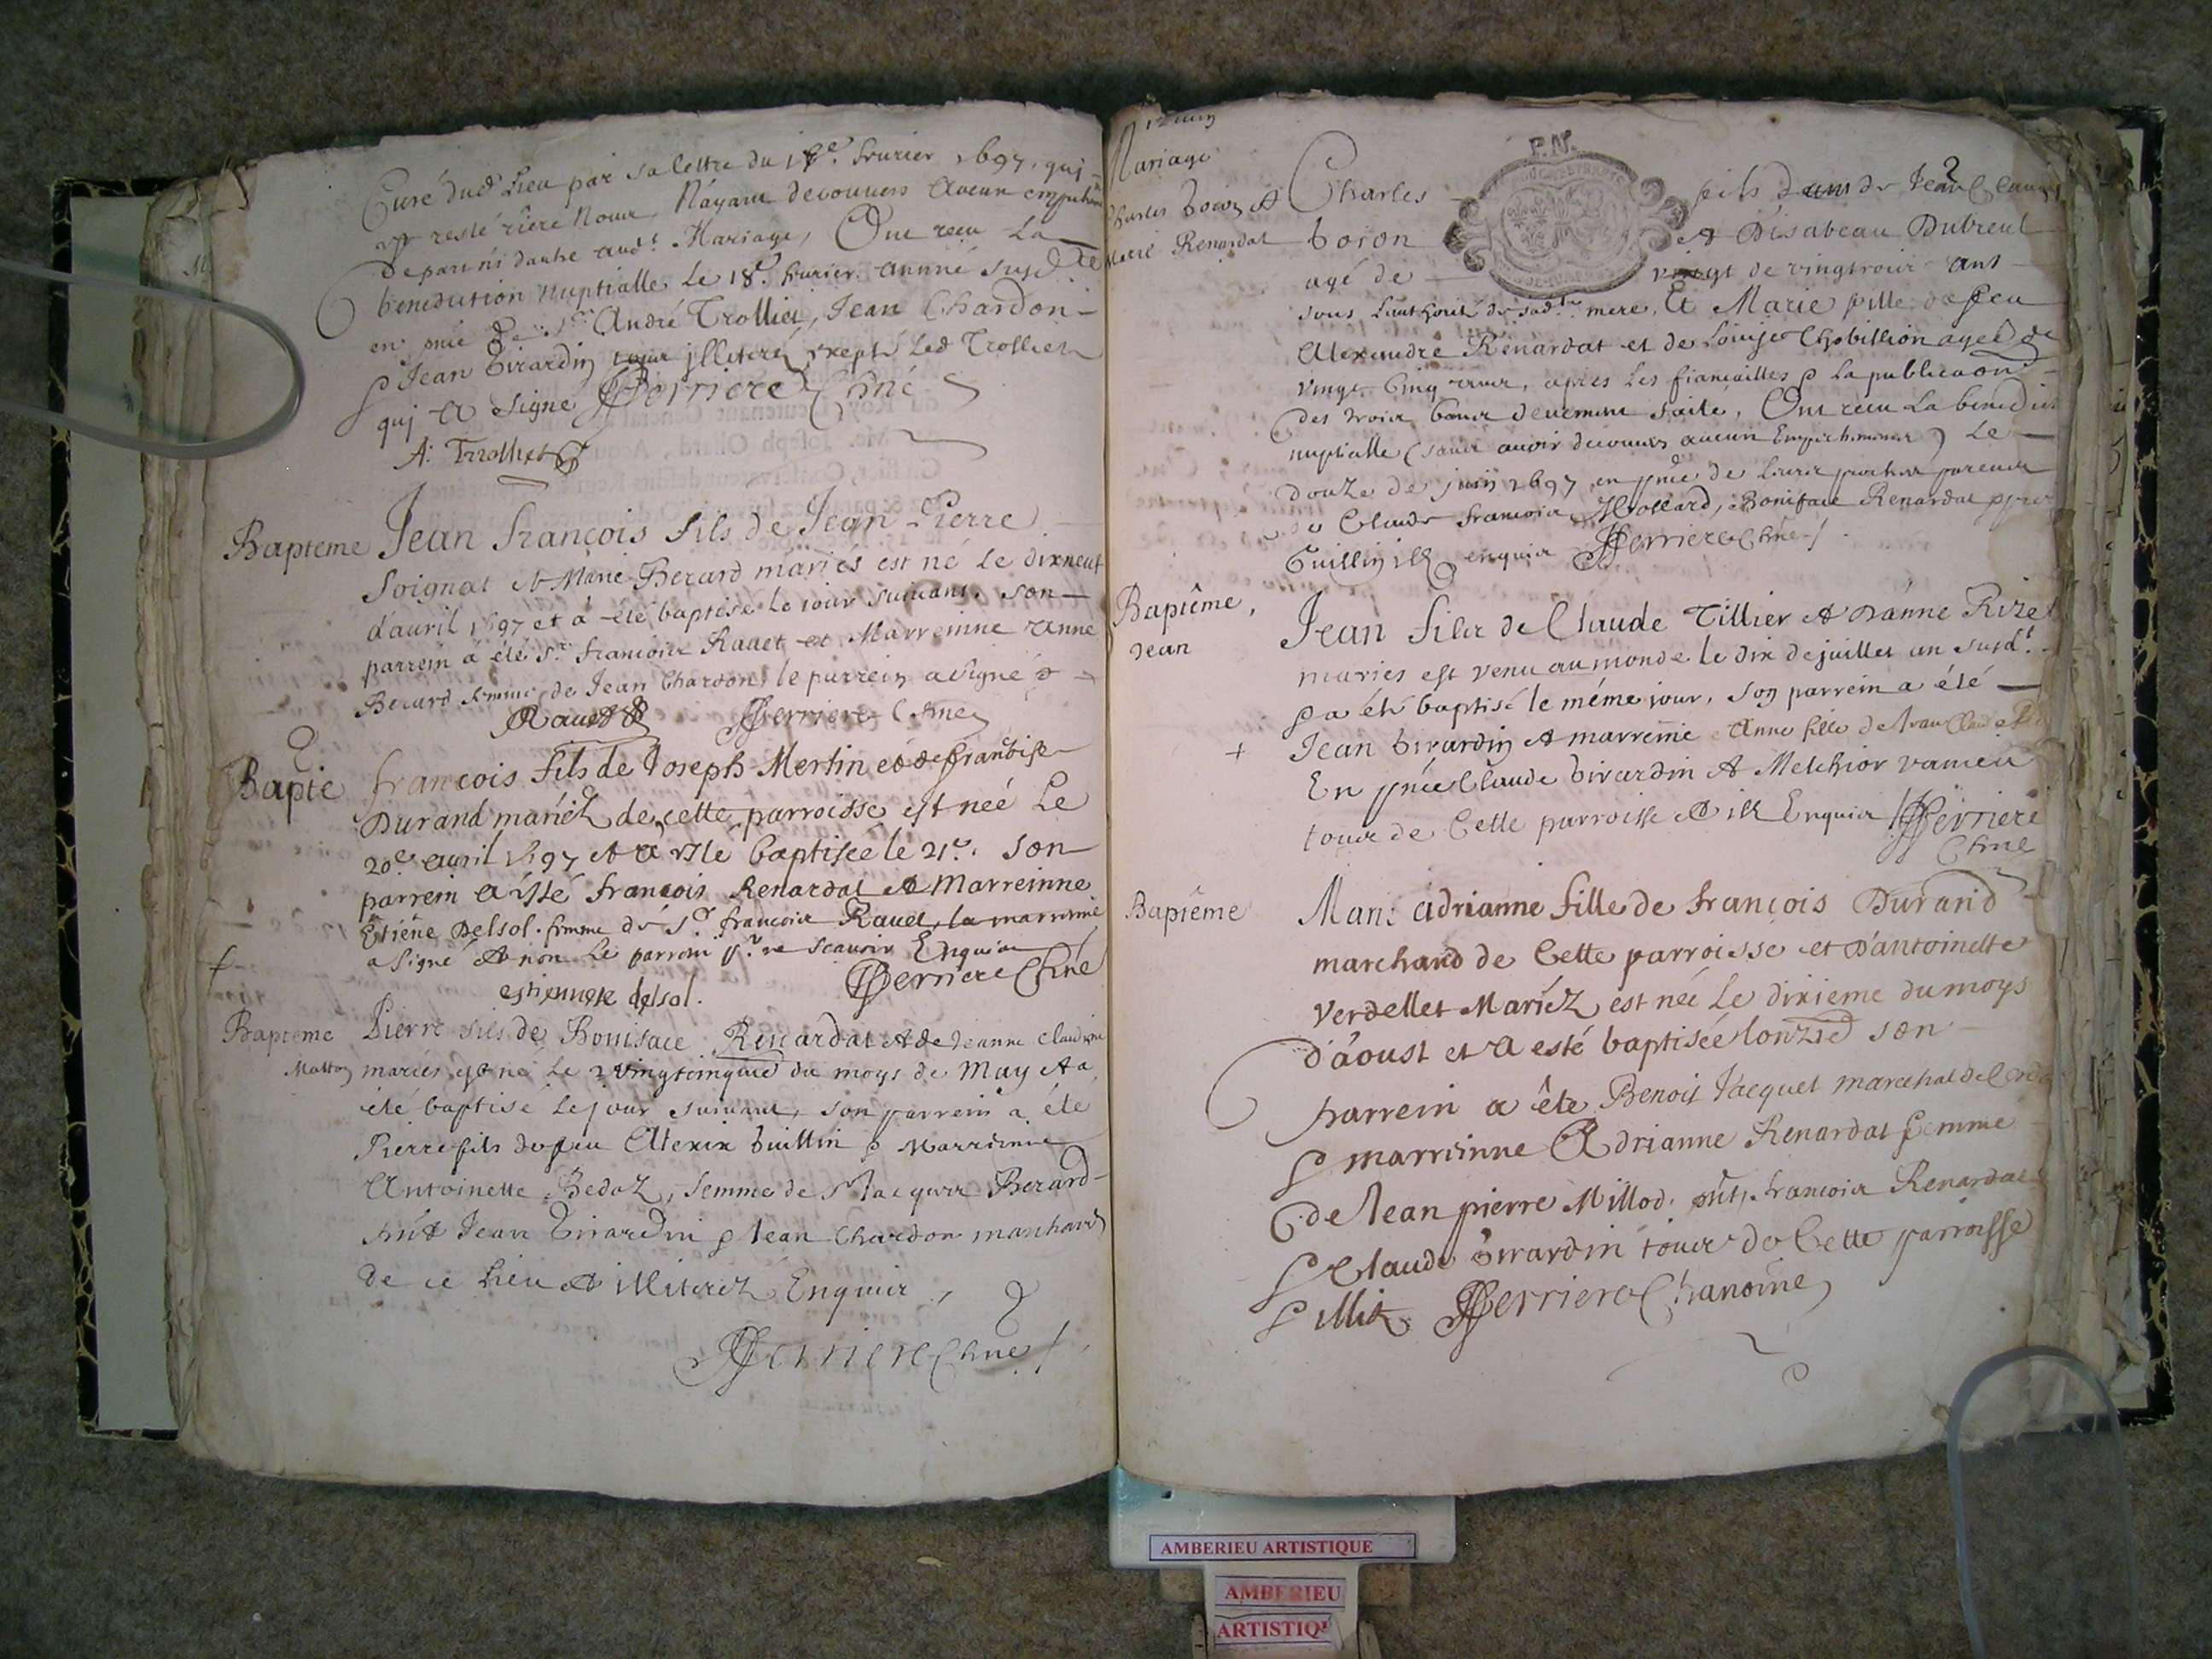 Curé dud. Lieu par sa lettre du feurier 1697. quj
resté riere Nour N'ayant decouuers Aucun
De part ni dautre aud.t Mariage, Ont receu La
benediction nuptialle Le 18.e feurier année susd.te
en pnce De s.r André Trolliet, Jean Chardon
Jean Girardin tour jlliterez exepté Led Trolliet
quj A signé Perriere Chne
A: Trolliet
Bapteme Jean françois fils de Jean Pierre
Soignat et Marie Berard mariés est né Le dixneuf
d'auril 1697 et a été baptisé le iour suiuant. son
parrein a été S.r francoir Rauet et Marreinne Anne
Berard femme de Jean Chardon le parrein a signé
Rauet Perriere Chne
Bapte françois fils de Joseph Mertin et de françoise
Durand mariéz de cette parroisse est neé Le
20.e auril 1697 et a esté baptisée le 21.e. son
parrein a isté françois Renardat et Marreinne
Etiene Delsol. femme de S.r francoir Rauet, la marreinne
a signé et non Le parrein p.r ne scauoir Enquir
Perriere Chne
estiennette delsol.
Bapteme Pierre fils de Boniface Renardat et de Jeanne Claudine
Matton mariés est né Le vingtcinquie du moys de May et a
eté baptisé Le jour suiuant, son parrein a éte
Pierre fils de feu Alexix Guillin Marreinne
Antoinette Bedoz, femme de s.r Jacquir Berard
Jean Girardin Jean Chardon marchand
de ce Lieu et illiterez Enquir
Perriere Chne
12 iuin
Mariage
Charles boion et
Marie Renardat
P.N.
Charles fils de Jean Claude
boion et D'isabeau Dubreul
agé de vingt de vingtroir ans
sous Lauthorité de sad.te mere, Et Marie fille de feu
Alexandre Renardat et de Louise Chobillion ageé de
vingt Cinq anner, apres Les fiancailles La publicaon
des troir bans deuement faite, Ont receu La benedict
nuptialle (sans auoir decouuers aucun Empechement) Le
douze de juin 1697 en pnce de Leurs procher parens
Claude francoir Mollard, Boniface Renardat
Guillin ill enquir Perriere Chne
Baptême,
Jean
Jean filz de Claude Tillier et D'anne Rizet
mariés est venu au monde le dix de juillet an susd.t
a été baptisé le méme jour, son parrein a été
Jean Girardin et marreine Anne fille de Jean Claude
En pnce Claude Girardin et Melchior
tour de Cette parroisse et ill Enquir Perriere
Chne
Baptême Marie adrianne fille de françois Durand
marchand de Cette parroisse et D'antoinette
Verdellet Mariéz est née Le dixieme du moys
d'âoust et a esté baptisée Lonzie son
parrein a éte Benoit Jacquet marechal
marreinne Adrianne Renardat femme
de Jean pierre Millod. francoir Renardat
Claude Girardin tour de Cette parroisse
illit. Perriere Chanoine
AMBERIEU ARTISTIQUE
AMBERIEU
ARTISTIQU